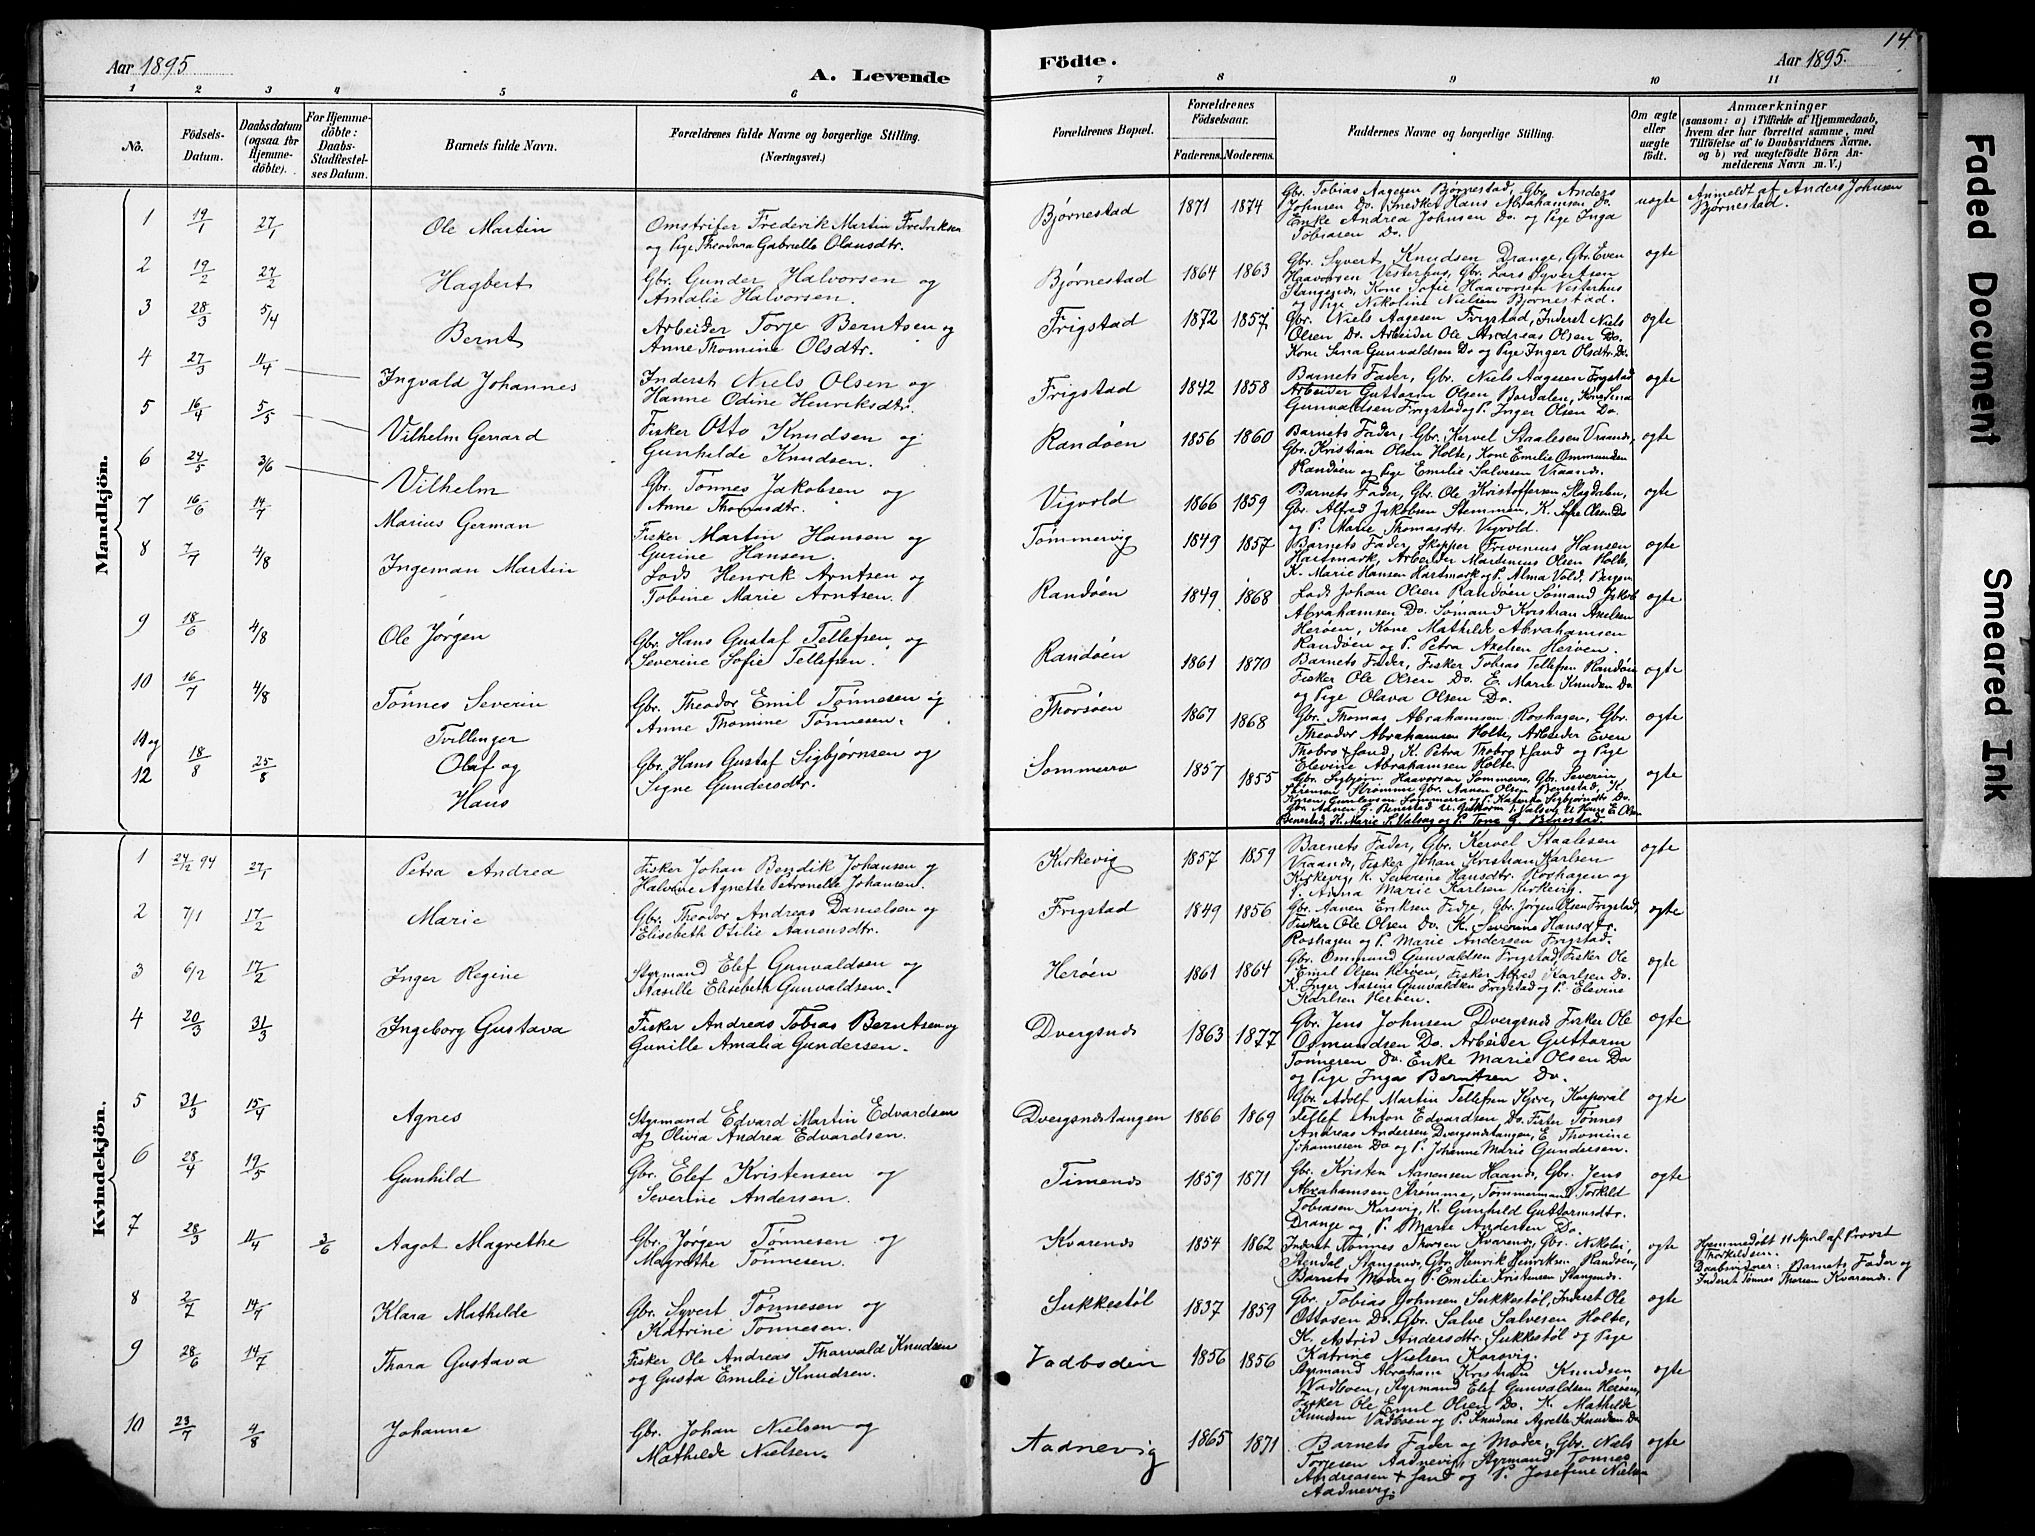 Aar 1895
A. Levende
Födte.
Aar 1895.
14
1 2 3 4 5 6 7 8 9 10 11
No.
Födsels-
Datum.
Daabsdatum
(ogsaa for
Hjemme-
döbte).
For Hjemme-
döbte:
Daabs-
Stadfæstel-
ses Datum.
Barnets fulde Navn.
Forældrenes fulde Navne og borgerlige Stilling.
(Næringsvei.)
Forældrenes Bopæl.
Forældrenes
Födselsaar.
Faderens. Moderens.
Faddernes Navne og borgerlige Stilling.
Om ægte
eller
uægte
födt.
Anmærkninger
(saasom: a) i Tilfælde af Hjemmedaab,
hvem der har forrettet samme, med
Tilföielse af to Daabsvidners Navne.
og b) ved uægtefödte Börn An-
melderens Navn m. V.)
Mandkjön.
1 19/1 27/1 Ole Martin
Omstrifer Frederik Martin Fredriksen
og Pige Theodora Gabrielle Olausdtr.
Bjørnestad 1871 1874
Gbr. Tobias Aagesen Bjørnestad, Gbr. Anders
Johnsen Do. Snedker Hans Abrahamsen Do.
Enke Andrea Johnsen Do. og Pige Inga
Tobiasen Do.
uægte
Anmeldt af Anders Johnsen
Bjørnestad.
2 19/2 27/2 Hagbert
Gbr. Gunder Halvorsen og
Amalie Halvorsen.
Bjørnestad 1864 1863
Gbr. Syvert Knudsen Drange, Gbr. Even
Haavorsen Vesterhus, Gbr. Lars Syvertsen
Stangenes, Kone Sofie Haavorsen Vesterhus
og Pige Nikoline Nielsen Bjørnestad.
ægte
3 28/3 5/4 Bernt
Arbeider Torje Berntsen og
Anne Thomine Olsdtr.
Frigstad 1872 1857
Gbr. Niels Aagesen Frigstad, Inderst Niels
Olsen Do. Arbeider Ole Andreas Olsen Do.
Kone Sina Gunvaldsen Do og Pige Inger Olsdtr. Do.
ægte
4 27/3 11/4 Ingvald Johannes
Inderst Niels Olsen og
Hanne Odine Henriksdtr.
Frigstad 1842 1858
Barnets Fader, Gbr. Niels Aagesen Frigstad
Arbeider Guttorm Olsen Bordalen, Kone Sina
Gunvaldsen Frigstad og P. Inger Olsen Do.
ægte
5 16/4 5/5 Vilhelm Gerrard
Fisker Otto Knudsen og
Gunhilde Knudsen.
Randøen 1856 1860
Barnets Fader, Gbr. Kervel Staalesen Vraanes,
Gbr. Kristian Olsen Holte, Kone Emilie Ommundsen
Randøen og Pige Emilie Salvesen Vraanes.
ægte
6 24/5 3/6 Vilhelm
Gbr. Tønnes Jakobsen og
Anne Thomasdtr.
Vigvold 1866 1859
Barnets Fader, Gbr. Ole Kristoffersen Slagdalen,
Gbr. Alfred Jakobsen Stemmen, K. Sofie Olsen Do
og P. Marie Thomasdtr. Vigvold.
ægte
7 16/6 14/7 Marius German
Fisker Martin Hansen og
Gurine Hansen.
Tømmervig 1849 1857
Barnets Fader, Skipper Frivenius Hansen
Hartmark, Arbeider Mardinius Olsen Holte,
K. Marie Hansen Hartmark og P. Alma Vold, Bergen
ægte
8 7/7 4/8 Ingeman Martin
Lods Henrik Arntsen og
Tobine Marie Arntsen.
Randøen 1849 1868
Lods Johan Olsen Randøen Sømand Jakob
Abrahamsen Do. Sømand Kristian Axelsen
Herøen, Kone Mathilde Abrahamsen
Randøen og P. Petra Axelsen Herøen.
ægte
9 18/6 4/8 Ole Jørgen
Gbr. Hans Gustaf Tellefsen og
Severine Sofie Tellefsen.
Randøen 1861 1870
Barnets Fader, Fisker Tobias Tellefsen Randøen
Fisker Ole Olsen Do. E. Marie Knudsen Do
og Pige Olava Olsen Do.
ægte
10 16/7 4/8 Tønnes Severin
Gbr. Theodor Emil Tønnesen og
Anne Thomine Tønnesen.
Thorsøen 1867 1868
Gbr. Thomas Abrahamsen Roshagen, Gbr.
Theodor Abrahamsen Holte, Arbeider Even
Thobro + sand, K. Petra Thobro + sand og Pige
Elevine Abrahamsen Holte.
ægte
11 og
12 18/8 25/8 Tvillinger
Olaf og
Hans
Gbr. Hans Gustaf Sigbjørnsen og
Signe Gundersdtr.
Sommerro 1857 1855
Gbr. Sigbjørn Haavorsen Sommerro, Gbr. Severin
Sørensen Strømme Gbr. Aanen Olsen Benestad, K.
ægte
Kvindekjön.
1 24/12 94 27/1 Petra Andrea
Fisker Johan Bendik Johansen og
Halvine Agnette Petronelle Johansen.
Kirkevig 1857 1859
Barnets Fader, Gbr. Kervel Staalesen
Vraanes, Fisker Johan Kristian Karlsen
Kirkevig, K. Severine Hansdtr. Roshagen og
P. Anna Marie Karlsen Kirkevig.
ægte
2 7/1 17/2 Marie
Gbr. Theodor Andreas Danielsen og
Elisabeth Otilie Aanensdtr.
Frigstad 1849 1856
Gbr. Aanen Eriksen Fidje, Gbr. Jørgen Olsen Frigstad,
Fisker Ole Olsen Do. K. Severine Hansdtr.
Roshagen og P. Marie Andersen Frigstad.
ægte
3 6/2 17/2 Inger Regine
Styrmand Elef Gunvaldsen og
Stasille Elisebeth Gunvaldsen.
Herøen 1861 1864
Gbr. Ommund Gunvaldsen Frigstad, Fisker Ole
Emil Olsen Herøen, Fisker Alfred Karlsen Do.
K. Inger Aasine Gunvaldsen Frigstad og P. Elevine
Karlsen Herøen.
ægte
4 20/3 31/3 Ingeborg Gustava
Fisker Andreas Tobias Berntsen og
Gunille Amalia Gundersen.
Dvergsnes 1863 1877
Gbr. Jens Johnsen Dvergsnes Fisker Ole
Osmundsen Do. Arbeider Guttorm
Tønnesen Do. Enke Marie Olsen Do
og Pige Inga Berntsen Do.
ægte
5 31/3 15/4 Agnes
Styrmand Edvard Martin Edvardsen
og Olivia Andrea Edvardsen.
Dvergsnestangen 1866 1869
Gbr. Adolf Martin Tellefsen Kjøre, Korporal
Tellef Anton Edvardsen Do. Fisker Tønnes
Andreas Andersen Dvergsnestangen, E. Thomine
Johannesen Do og P. Johanne Marie Gundersen.
ægte
6 28/4 19/5 Gunhild
Gbr. Elef Kristensen og
Severine Andersen.
Timenes 1859 1871
Gbr. Kristen Aanensen Haanes, Gbr. Jens
Abrahamsen Strømme, Tømmermand Torkild
Tobiasen Korsvig, K. Gunhild Guttormsdtr.
Drange og P. Marie Andersen Do.
ægte
7 28/3 11/4 3/6 Aagot Magrethe
Gbr. Jørgen Tønnesen og
Magrethe Tønnesen.
Kvarenes 1854 1862
Inderst Tønnes Thorsen Kvarenes, Gbr. Nikolai
Stendal, Stangenes, Gbr. Henrik Henriksen Randøen,
Barnets Moder og P. Emilie Kristensen Stangenes.
ægte
Hjemmedøbt 11 April af Provst
Thorkildsen.
Daabsvidner: Barnets Fader og
Inderst Tønnes Thorsen Kvarenes.
8 2/7 14/7 Klara Mathilde
Gbr. Syvert Tønnesen og
Katrine Tønnesen.
Sukkestøl 1837 1859
Gbr. Tobias Johnsen Sukkestøl, Inderst Ole
Ottosen Do. Gbr. Salve Salvesen Holte,
K. Astrid Andersdtr. Sukkestøl og Pige
Katrine Nielsen Korsvig.
ægte
9 28/6 14/7 Thora Gustava
Fisker Ole Andreas Thorvald Knudsen
og Gusta Emilie Knudsen.
Vadboden 1856 1856
Styrmand Abraham Kristian Knudsen
Vadboen, Styrmand Elef Gunvaldsen Herøen,
Fisker Ole Emil Olsen Do. K. Mathilde
Knudsen Vadboen og P. Knudine Agrette Knudsen Do
ægte
10 23/7 4/8 Johanne
Gbr. Johan Nielsen og
Mathilde Nielsen.
Aadnevig 1865 1871
Barnets Fader og Moder, Gbr. Niels
Torjesen Aadnevig, Styrmand Tønnes
Andreasen + sand og P. Josefine Nielsen
Aadnevig.
ægte
Faded Document
Smeared Ink